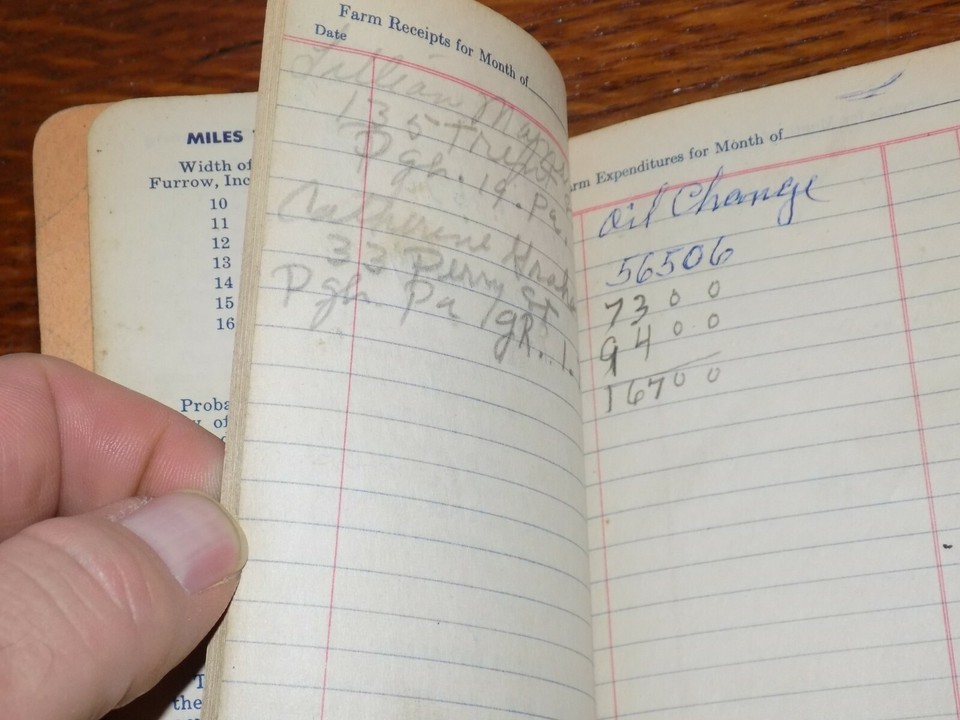 MILES
Width of
Furrow, Inc
10
11
12
13
14
15
16
Proba
y of
T
the
Farm Receipts for Month of
Date
Lillian
135
Pgh. 19. Pa.
Catherine
33 Perry St
Pgh Pa
rm Expenditures for Month of
Oil Change
56506
7300
9400
16700